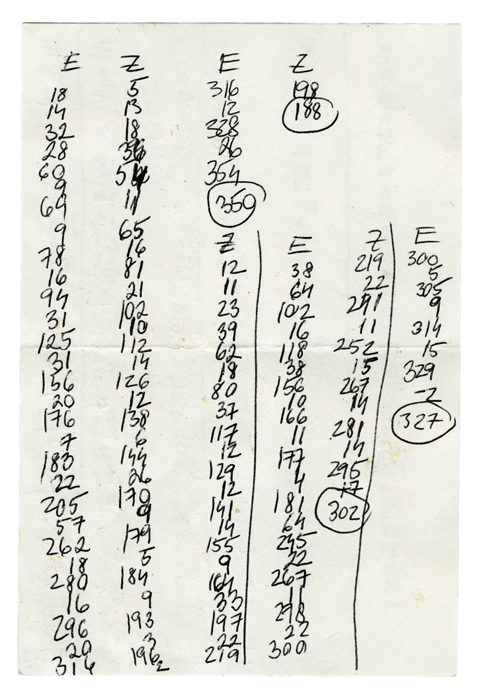 E
18
14
32
28
60
9
69
9
78
16
94
31
125
31
156
20
176
7
183
22
205
57
262
18
280
16
296
20
316
Z
5
13
18
36
54
11
65
16
81
21
102
10
112
14
126
12
138
6
144
26
170
9
179
5
184
9
193
3
196
2
E
316
12
328
26
354
350
Z
198
188
Z
12
11
23
39
62
18
80
37
117
12
129
12
141
14
155
9
164
33
197
22
219
E
38
64
102
16
118
38
156
10
166
11
177
4
181
64
245
22
267
11
278
22
300
Z
219
22
241
11
252
15
267
14
281
14
295
17
302
E
300
5
305
9
314
15
329
-2
327